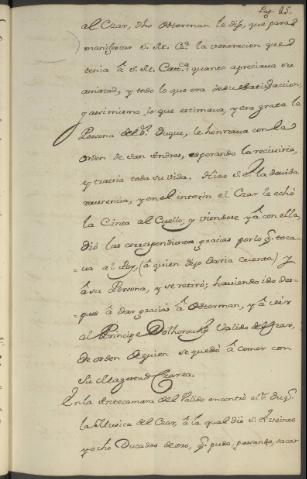 Pag. 25.
al Czar, dho Osterman le dijo, que para
manifestar a S. M. Ca. la veneracion que
tenia à S. M. Catt.ca quanto apreciava su
amistad, y todo lo que era de su satisfaccion
y assimismo, lo que estimava, y era grata la
Persona del Duque, le honrava con la
orden de San Andres, esperando la reciviria,
y traeria toda su vida. Hizo S. E. la devida
reverencia, y en el interin el Czar le echò
la Cinta al Cuello, y viendose yà con ella,
diò las correspondientes gracias por lo q. toca-
va al Rey, (à quien dijo daria cuenta) y
à su Persona, y se retirò; haviendo ido des-
pues à dar gracias à Osterman, y à ver
al Principe Dolhorucky Valido del Czar,
de orden de quien se quedò à comer con
Su Magestad Czarea.
En la Antecamara del Valido encontrò el Duq.
la Musica del Czar, à la qual diò S. E. veinte
y ocho Ducados de oro, q. pudo, passando, sacar